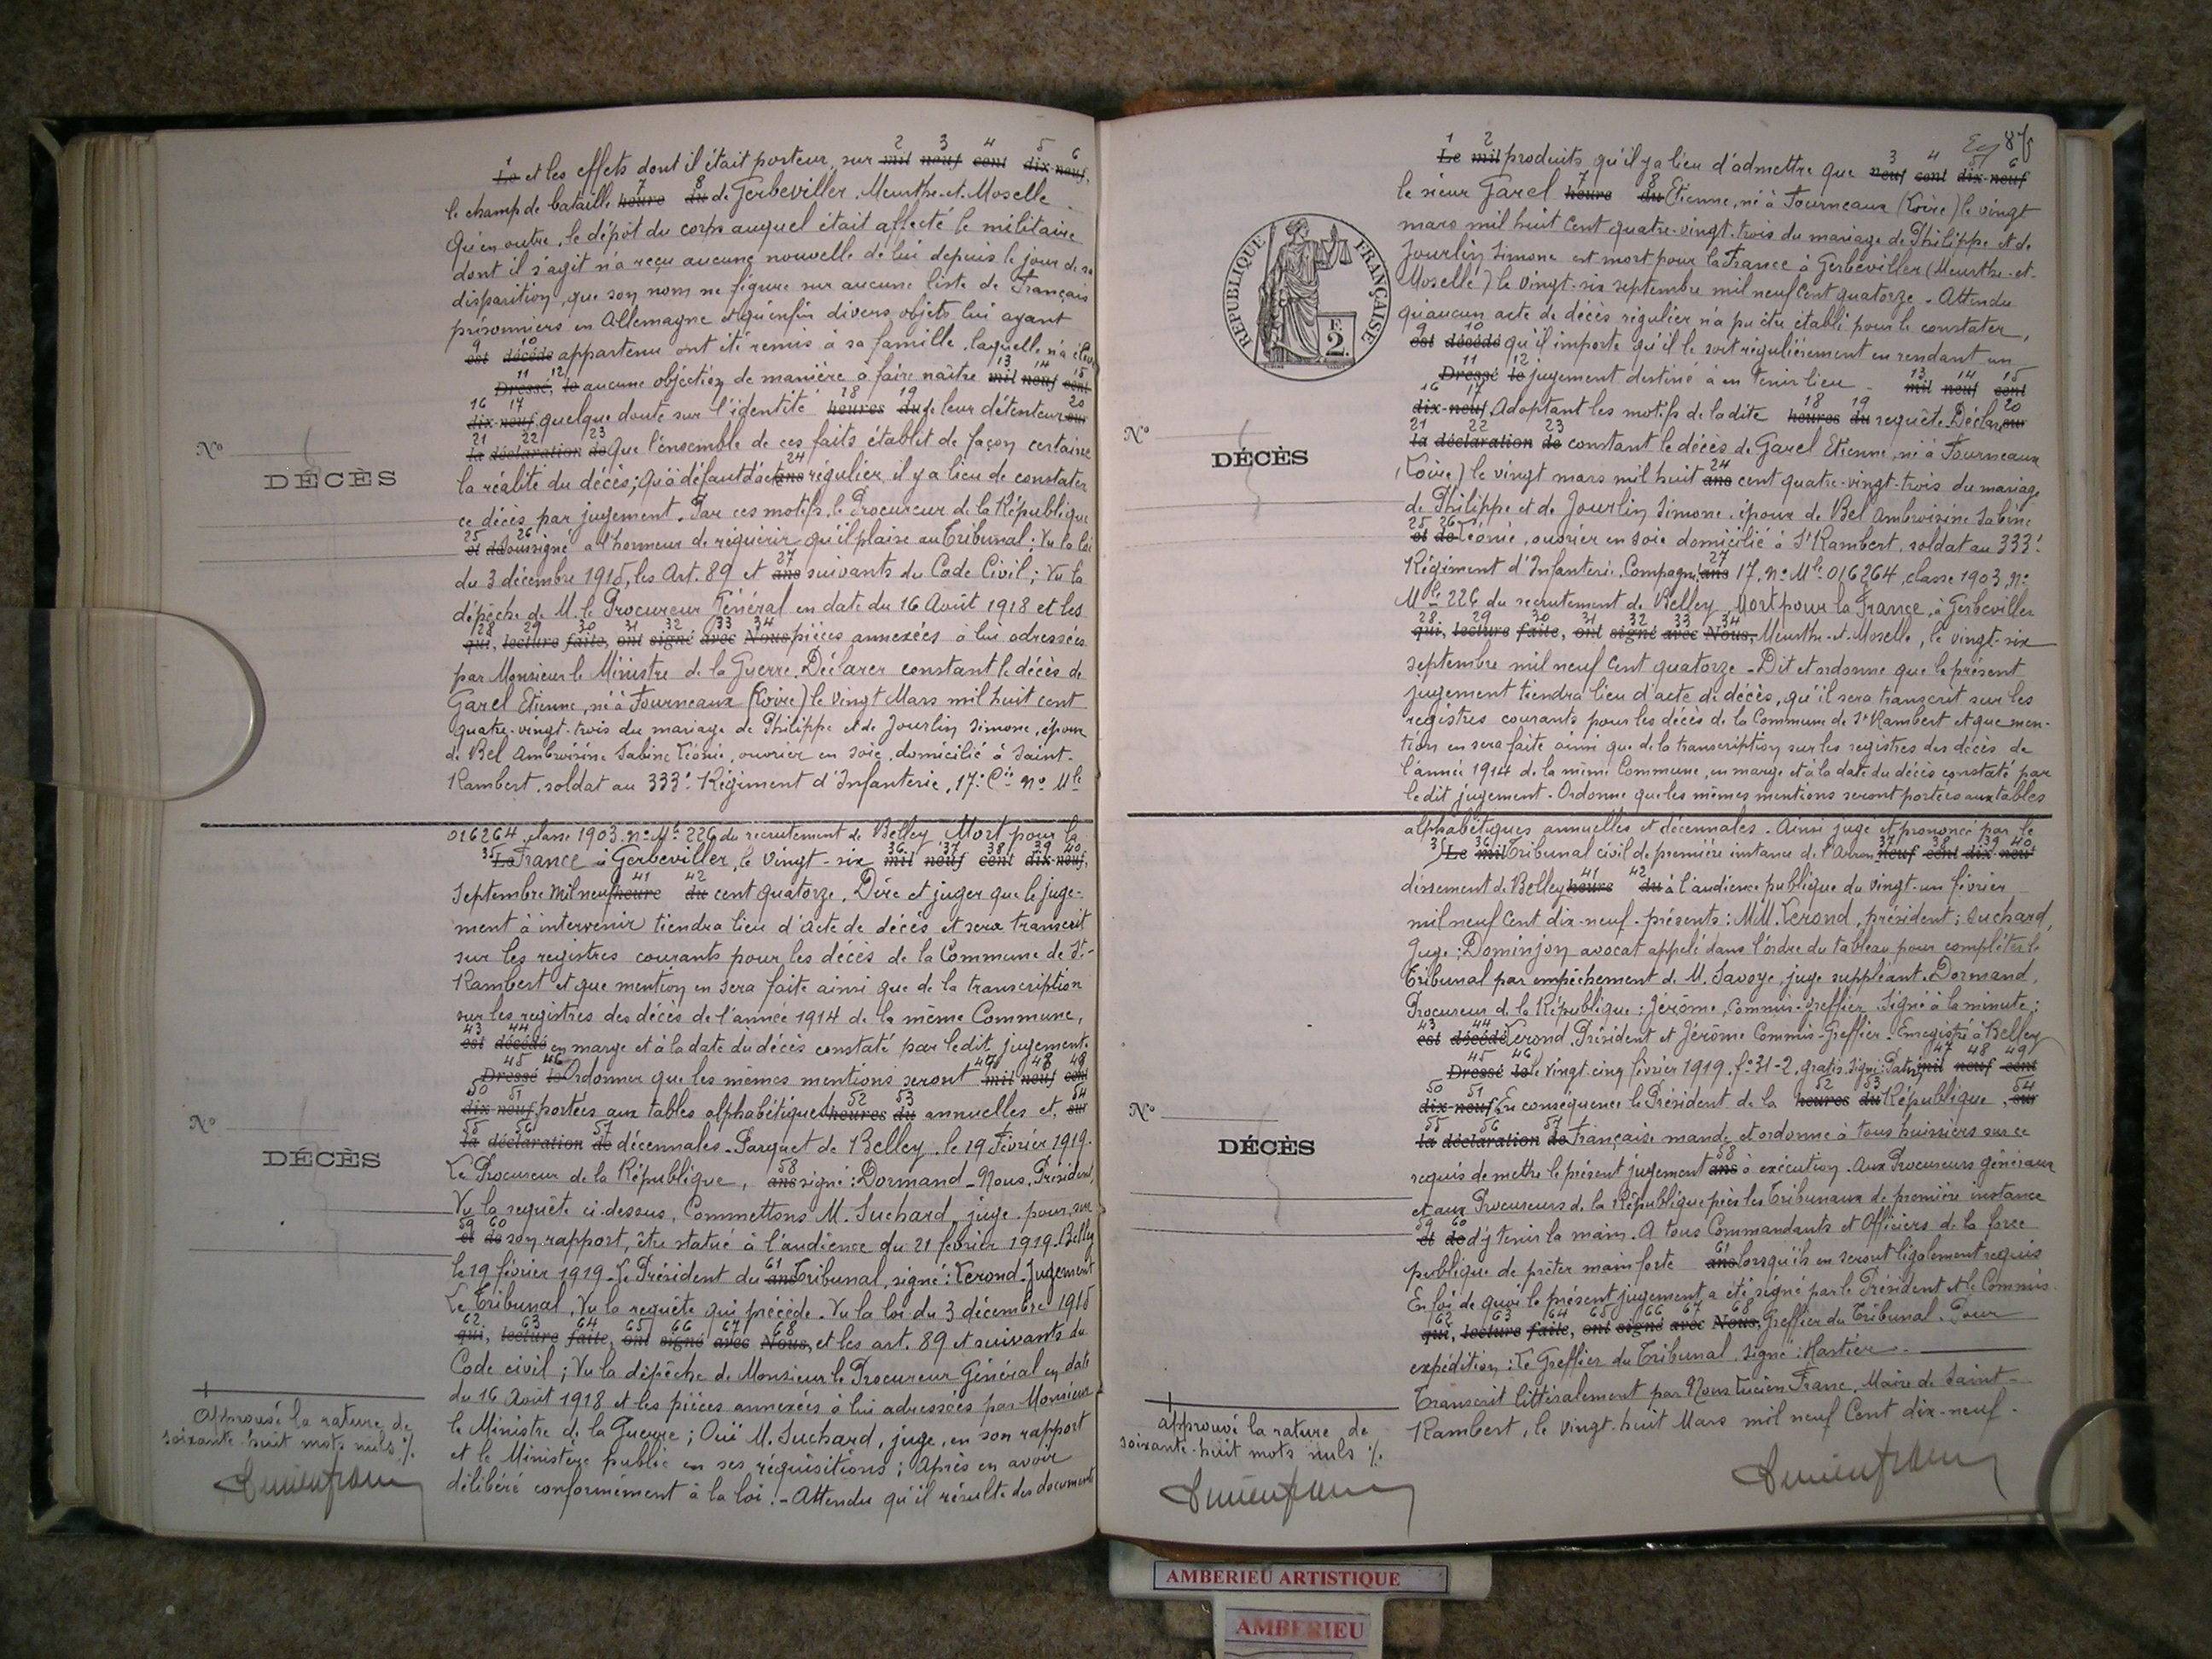 1 2 3 4 5 6
Le et les effets dont il était porteur, sur mil neuf cent dix-neuf,
7 8
le champ de bataille heure du de Gerbeviller. Meurthe-et-Moselle.
Qu'en outre, le dépôt du corps auquel était affecté le militaire
dont il s'agit n'a reçu aucune nouvelle de lui depuis le jour de sa
disparition, que son nom ne figure sur aucune liste de Français
prisonniers en Allemagne et qu'enfin divers objets lui ayant
9 10
est décédé appartenu ont été remis à sa famille laquelle n'a élevé
11 12 13 14 15
Dressé, le aucune objection de manière à faire naître mil neuf cent
16 17 18 19 20
dix-neuf quelque doute sur l'identité heures du de leur détenteur sur
21 22 23
la déclaration de que l'ensemble de ces faits établit de façon certaine
24
la réalité du décès; Qu'à défaut d'acte ans régulier, il y a lieu de constater
ce décès par jugement. Par ces motifs, le Procureur de la République
25 26
et de soussigné a l'honneur de requérir qu'il plaise au Tribunal; Vu la loi
27
du 3 décembre 1915, les Art. 89 et ans suivants du Code Civil; Vu la
dépêche de M. le Procureur Général en date du 16 Août 1918 et les
28 29 30 31 32 33 34
qui, lecture faite, ont signé avec Nous pièces annexées à lui adressées
par Monsieur le Ministre de la Guerre. Déclarer constant le décès de
Garel Etienne, né à Fourneaux (Loire) le vingt Mars mil huit cent
quatre-vingt-trois du mariage de Philippe et de Jourlin Simone, époux
de Bel Ambroisine Sabine Léonie, ouvrier en soie, domicilié à Saint-
Rambert, soldat au 333e Régiment d'Infanterie, 17e Cie No Mle
016264, classe 1903, No Mle 226 du recrutement de Belley Mort pour la
35 36 37 38 39 40
Le France à Gerbeviller, le vingt-six mil neuf cent dix-neuf,
41 42
Septembre mil neuf heure du cent quatorze. Dire et juger que le juge-
ment à intervenir tiendra lieu d'acte de décès et sera transcrit
sur les registres courants pour les décès de la Commune de St-
Rambert et que mention en sera faite ainsi que de la transcription
sur les registres des décès de l'année 1914 de la même Commune,
43 44
est décédé en marge et à la date du décès constaté par le dit jugement.
45 46 47 48 49
Dressé le Ordonner que les mêmes mentions seront mil neuf cent
50 51 52 53 54
dix-neuf, portées aux tables alphabétiques heures du annuelles et, sur
55 56 57
la déclaration de décennales. Parquet de Belley, le 19 Février 1919.
58
Le Procureur de la République, ans signé: Dormand - Nous, Président,
Vu la requête ci-dessus, Commettons M. Suchard, juge pour, sur
59 60
et de son rapport, être statué à l'audience du 21 février 1919. Belley
61
le 19 février 1919 - Le Président du ans Tribunal, signé: Verond. Jugement
Le Tribunal, Vu la requête qui précède. Vu la loi du 3 décembre 1915
62 63 64 65 66 67 68
qui, lecture faite, ont signé avec Nous, et les art. 89 et suivants du
Code civil; Vu la dépêche de Monsieur le Procureur Général en date
du 16 Août 1918 et les pièces annexées à lui adressées par Monsieur
le Ministre de la Guerre; Ouï M. Suchard, juge, en son rapport
et le Ministère public en ses réquisitions; Après en avoir
délibéré conformément à la loi. - Attendu qu'il résulte des documents
No
DÉCÈS
No
DÉCÈS
Approuvé la rature de
soixante-huit mots nuls %.
87
1 2 3 4 5 6
Le mil produits qu'il y a lieu d'admettre que neuf cent dix-neuf
7 8
le sieur Garel heure du Etienne, né à Fourneaux (Loire) le vingt
mars mil huit cent quatre-vingt-trois du mariage de Philippe et de
Jourlin Simone est mort pour la France à Gerbéviller (Meurthe-et-
Moselle) le vingt-six septembre mil neuf cent quatorze - Attendu
qu'aucun acte de décès régulier n'a pu être établi pour le constater,
9 10
est décédé qu'il importe qu'il le soit régulièrement en rendant un
11 12 13 14 15
Dressé le jugement destiné à en tenir lieu - mil neuf cent
16 17 18 19 20
dix-neuf Adoptant les motifs de ladite heures du requête. Déclare sur
21 22 23
la déclaration de constant le décès de Garel Etienne, né à Fourneaux
24
(Loire) le vingt mars mil huit ans cent quatre-vingt-trois du mariage
de Philippe et de Jourlin Simone, époux de Bel Ambroisine Sabine
25 26
et de Léonie, ouvrier en soie domicilié à St Rambert, soldat au 333e
27
Régiment d'Infanterie Compagnie ans 17, No Mle 016264, classe 1903, No
Mle 226 du recrutement de Belley, Mort pour la France, à Gerbeviller
28 29 30 31 32 33 34
qui, lecture faite, ont signé avec Nous, Meurthe-et-Moselle, le vingt-six
septembre mil neuf cent quatorze - Dit et ordonne que le présent
jugement tiendra lieu d'acte de décès, qu'il sera transcrit sur les
registres courants pour les décès de la Commune de St Rambert et que men-
tion en sera faite ainsi que de la transcription sur les registres des décès de
l'année 1914 de la même Commune, en marge et à la date du décès constaté par
le dit jugement - Ordonne que les mêmes mentions seront portées aux tables
alphabétiques annuelles et décennales. - Ainsi jugé et prononcé par le
36 37 38 39 40
Le mil Tribunal civil de première instance de l'Arron neuf cent dix-neuf
41 42
dissement de Belley heure du à l'audience publique du vingt-un février
mil neuf cent dix-neuf - présents: MM. Verond, président; Suchard,
Juge; Dominjon avocat appelé dans l'ordre du tableau pour compléter le
Tribunal par empêchement de M. Savoye, juge suppléant. Dormand,
Procureur de la République: Jérôme, Commis-greffier. Signé à la minute:
43 44
est décédé Verond, Président et Jérôme Commis-Greffier - Enregistré à Belley
45 46 47 48 49
Dressé le le vingt-cinq février 1919. fo 31-2, gratis. signé: mil neuf cent
50 51 52 53 54
dix-neuf En conséquence le Président de la heures du République, sur
55 56 57
la déclaration de Française mande et ordonne à tous huissiers sur ce
58
requis de mettre le présent jugement ans à exécution. Aux Procureurs généraux
et aux Procureurs de la République près les Tribunaux de première instance
59 60
et de d'y tenir la main. A tous Commandants et Officiers de la force
61
publique de prêter main forte ans lorsqu'ils en seront légalement requis
En foi de quoi le présent jugement a été signé par le Président et le Commis
62 63 64 65 66 67 68
qui, lecture faite, ont signé avec Nous, Greffier du Tribunal. Pour
expédition: Le Greffier du Tribunal. signé: Hastier.
Transcrit littéralement par Nous Lucien Franc, Maire de Saint-
Rambert, le vingt-huit Mars mil neuf cent dix-neuf.
REPUBLIQUE FRANÇAISE
F.
2.
No
DÉCÈS
No
DÉCÈS
approuvé la rature de
soixante-huit mots nuls %.
AMBERIEU ARTISTIQUE
AMBERIEU